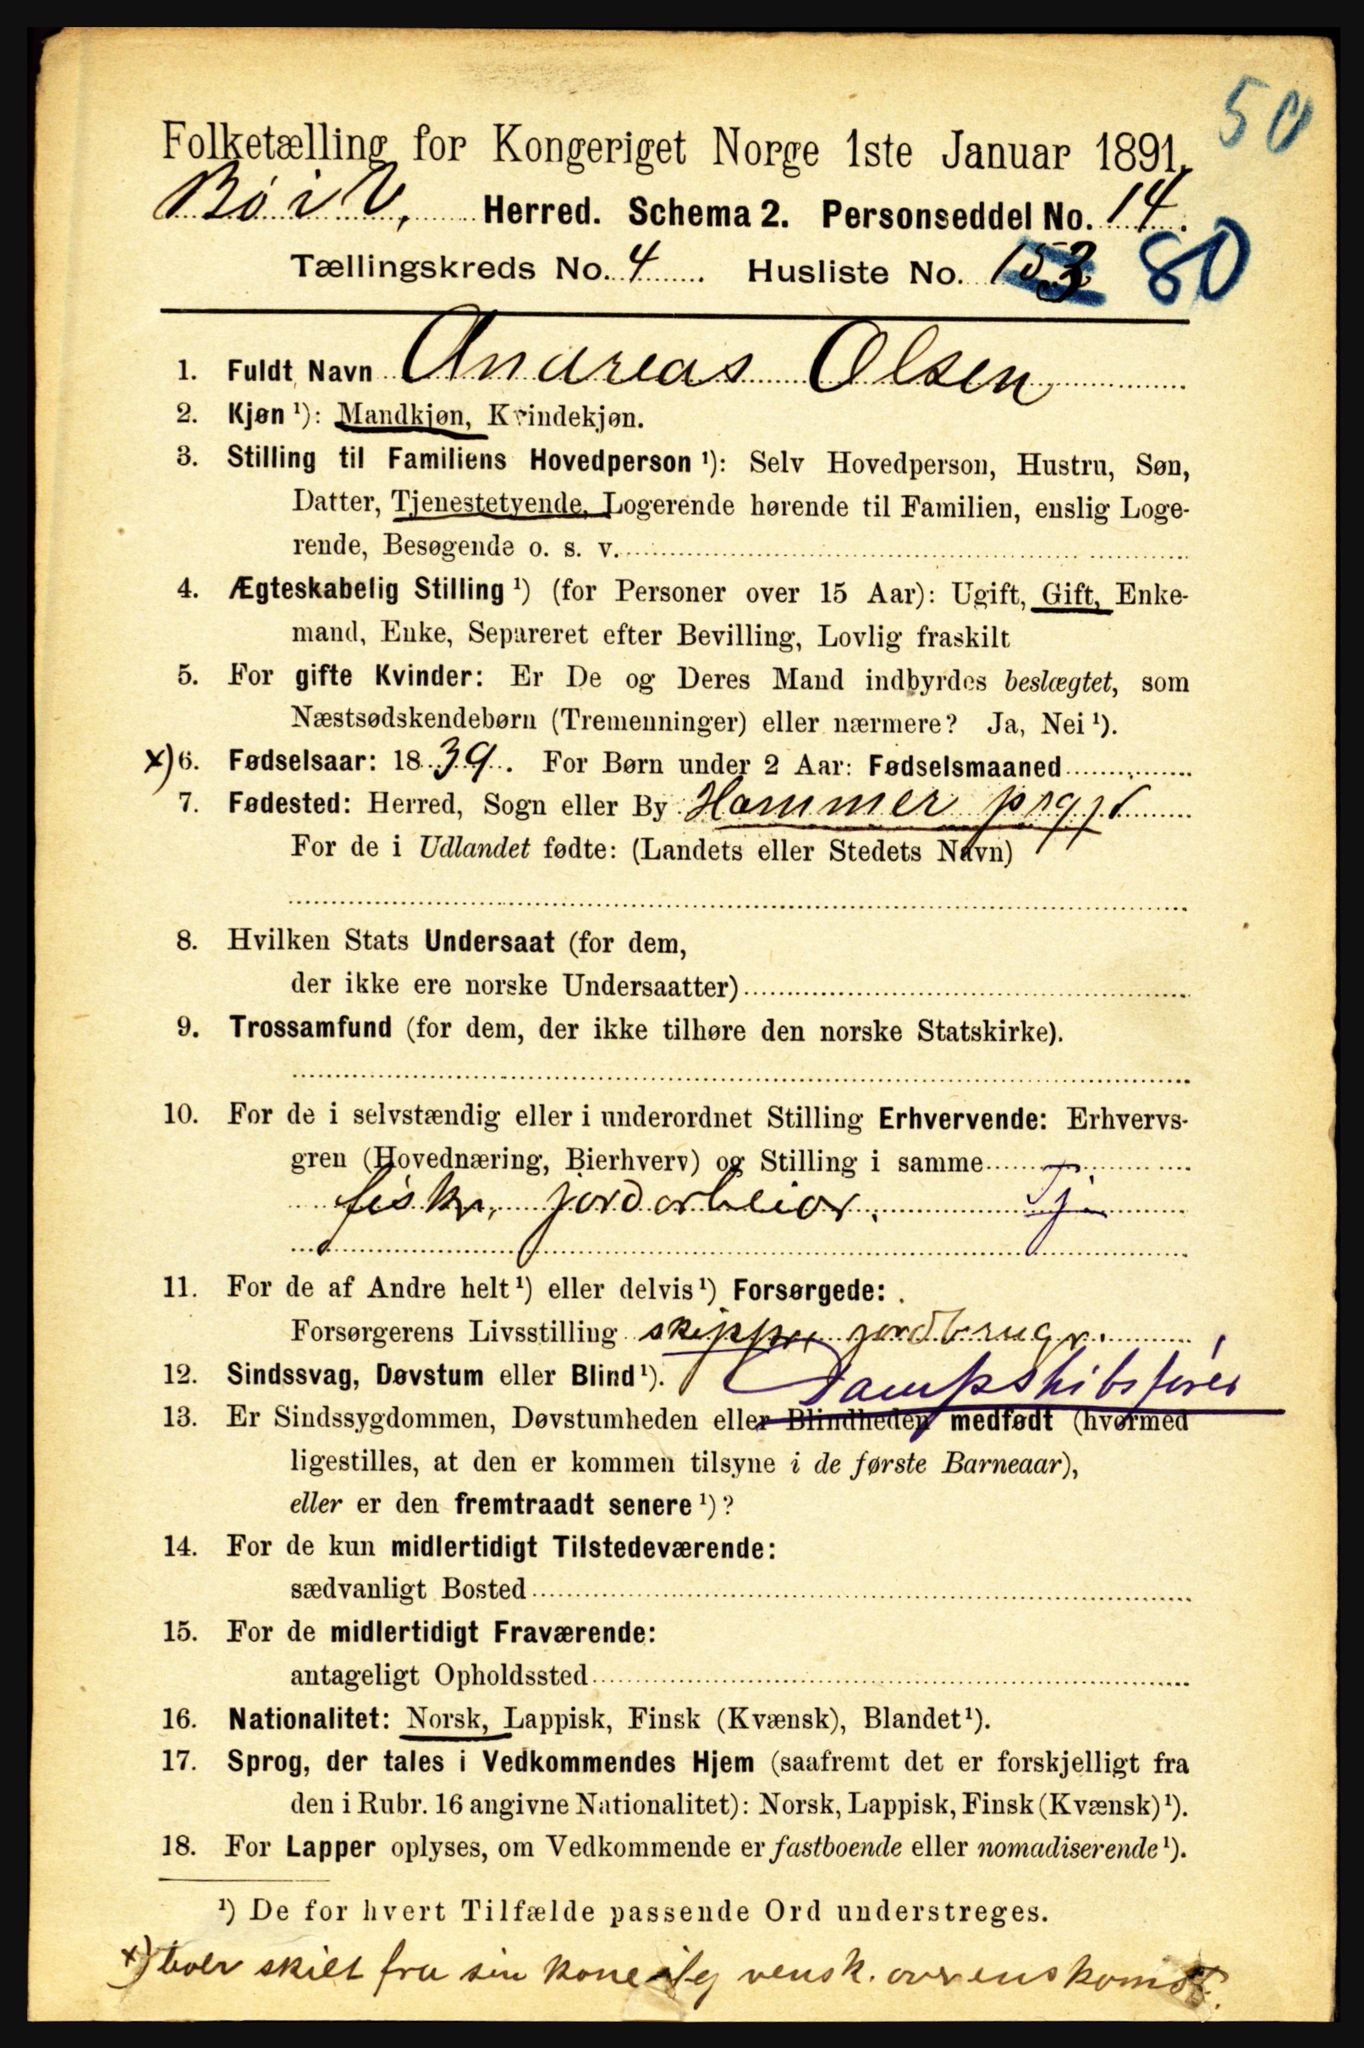 50
Folketælling for Kongeriget Norge 1ste Januar 1891.
Bø i V. Herred. Schema 2. Personseddel No. 14.
Tællingskreds No. 4 Husliste No. 153 80
1. Fuldt Navn Andreas Olsen
2. Kjøn ¹): Mandkjøn, Kvindekjøn.
3. Stilling til Familiens Hovedperson ¹): Selv Hovedperson, Hustru, Søn,
Datter, Tjenestetyende, Logerende hørende til Familien, enslig Loge-
rende, Besøgende o. s. v.
4. Ægteskabelig Stilling ¹) (for Personer over 15 Aar): Ugift, Gift, Enke-
mand, Enke, Separeret efter Bevilling, Lovlig fraskilt
5. For gifte Kvinder: Er De og Deres Mand indbyrdes beslægtet, som
Næstsødskendebørn (Tremenninger) eller nærmere? Ja, Nei ¹).
x) 6. Fødselsaar: 1839. For Børn under 2 Aar: Fødselsmaaned
7. Fødested: Herred, Sogn eller By Hammer prgjd
For de i Udlandet fødte: (Landets eller Stedets Navn)
8. Hvilken Stats Undersaat (for dem,
der ikke ere norske Undersaatter)
9. Trossamfund (for dem, der ikke tilhøre den norske Statskirke).
10. For de i selvstændig eller i underordnet Stilling Erhvervende: Erhvervs-
gren (Hovednæring, Bierhverv) og Stilling i samme
fiskr, jordarbeidr. Tj
11. For de af Andre helt ¹) eller delvis ¹) Forsørgede:
Forsørgerens Livsstilling skippr, jordbrugr.
12. Sindssvag, Døvstum eller Blind ¹). Dampskibsfører
13. Er Sindssygdommen, Døvstumheden eller Blindheden medfødt (hvormed
ligestilles, at den er kommen tilsyne i de første Barneaar),
eller er den fremtraadt senere ¹)?
14. For de kun midlertidigt Tilstedeværende:
sædvanligt Bosted
15. For de midlertidigt Fraværende:
antageligt Opholdssted
16. Nationalitet: Norsk, Lappisk, Finsk (Kvænsk), Blandet ¹).
17. Sprog, der tales i Vedkommendes Hjem (saafremt det er forskjelligt fra
den i Rubr. 16 angivne Nationalitet): Norsk, Lappisk, Finsk (Kvænsk) ¹).
18. For Lapper oplyses, om Vedkommende er fastboende eller nomadiserende ¹).
¹) De for hvert Tilfælde passende Ord understreges.
x) bor skilt fra sin kone vensk. overenskomst.